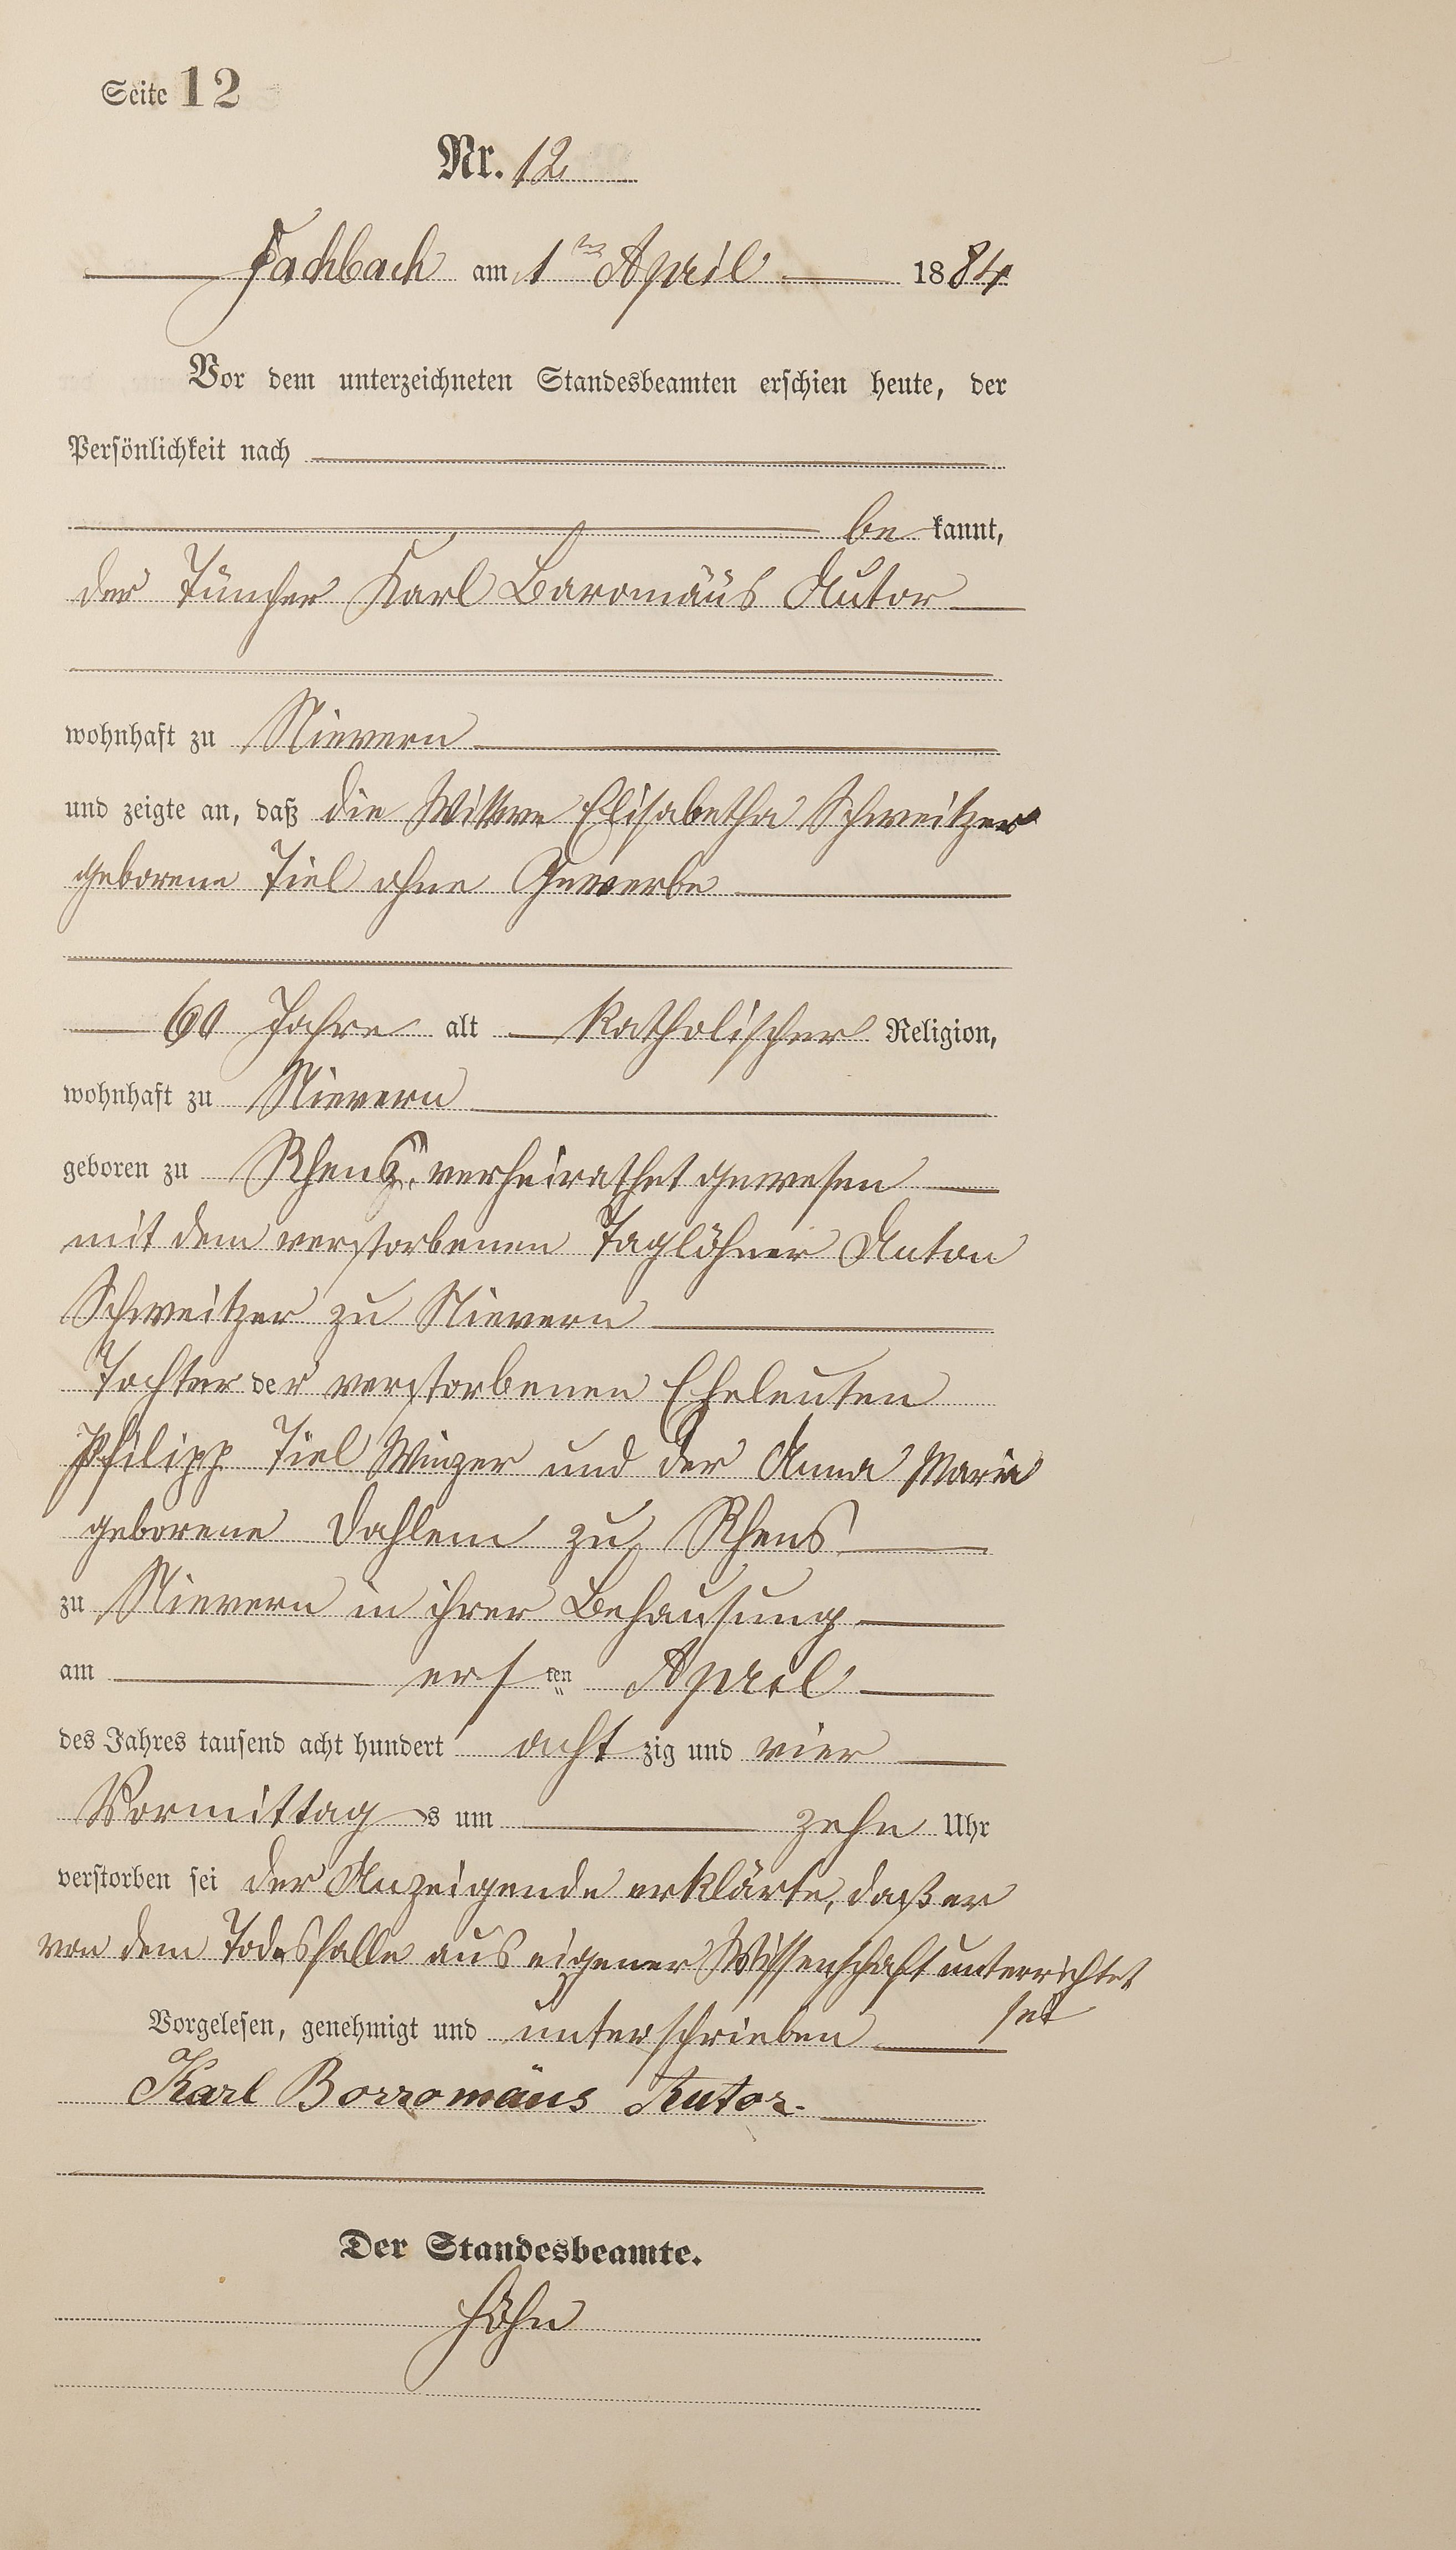 Seite 12
Nr. 12
Fachbach am 1ten April 1884
Vor dem unterzeichneten Standesbeamten erschien heute, der
Persönlichkeit nach
be kannt,
der Tüncher Karl Baromäüs Autor
wohnhaft zu Nievern
und zeigte an, daß die Wittwe Elisabetha Schweitzer
geborene Tiel ohne Gewerbe
60 Jahre alt katholischer Religion,
wohnhaft zu Nievern
geboren zu Rhens, verheirathet gewesen
mit dem verstorbenen Taglöhner Anton
Schweitzer zu Nievern
Tochter der verstorbenen Eheleuten
Philipp Tiel Winzer und der Anna Maria
geborene Dahlem zu Rhens
zu Nievern in ihrer Behausung
am ersten April
des Jahres tausend acht hundert acht zig und vier
Vormittags um zehn Uhr
verstorben sei der Anzeigende erklärte, daß er
von dem Todesfalle aus eigener Wissenschaft unterrichtet
sei
Vorgelesen, genehmigt und unterschrieben
Karl Borromäus Autor.
Der Standesbeamte.
Höhn